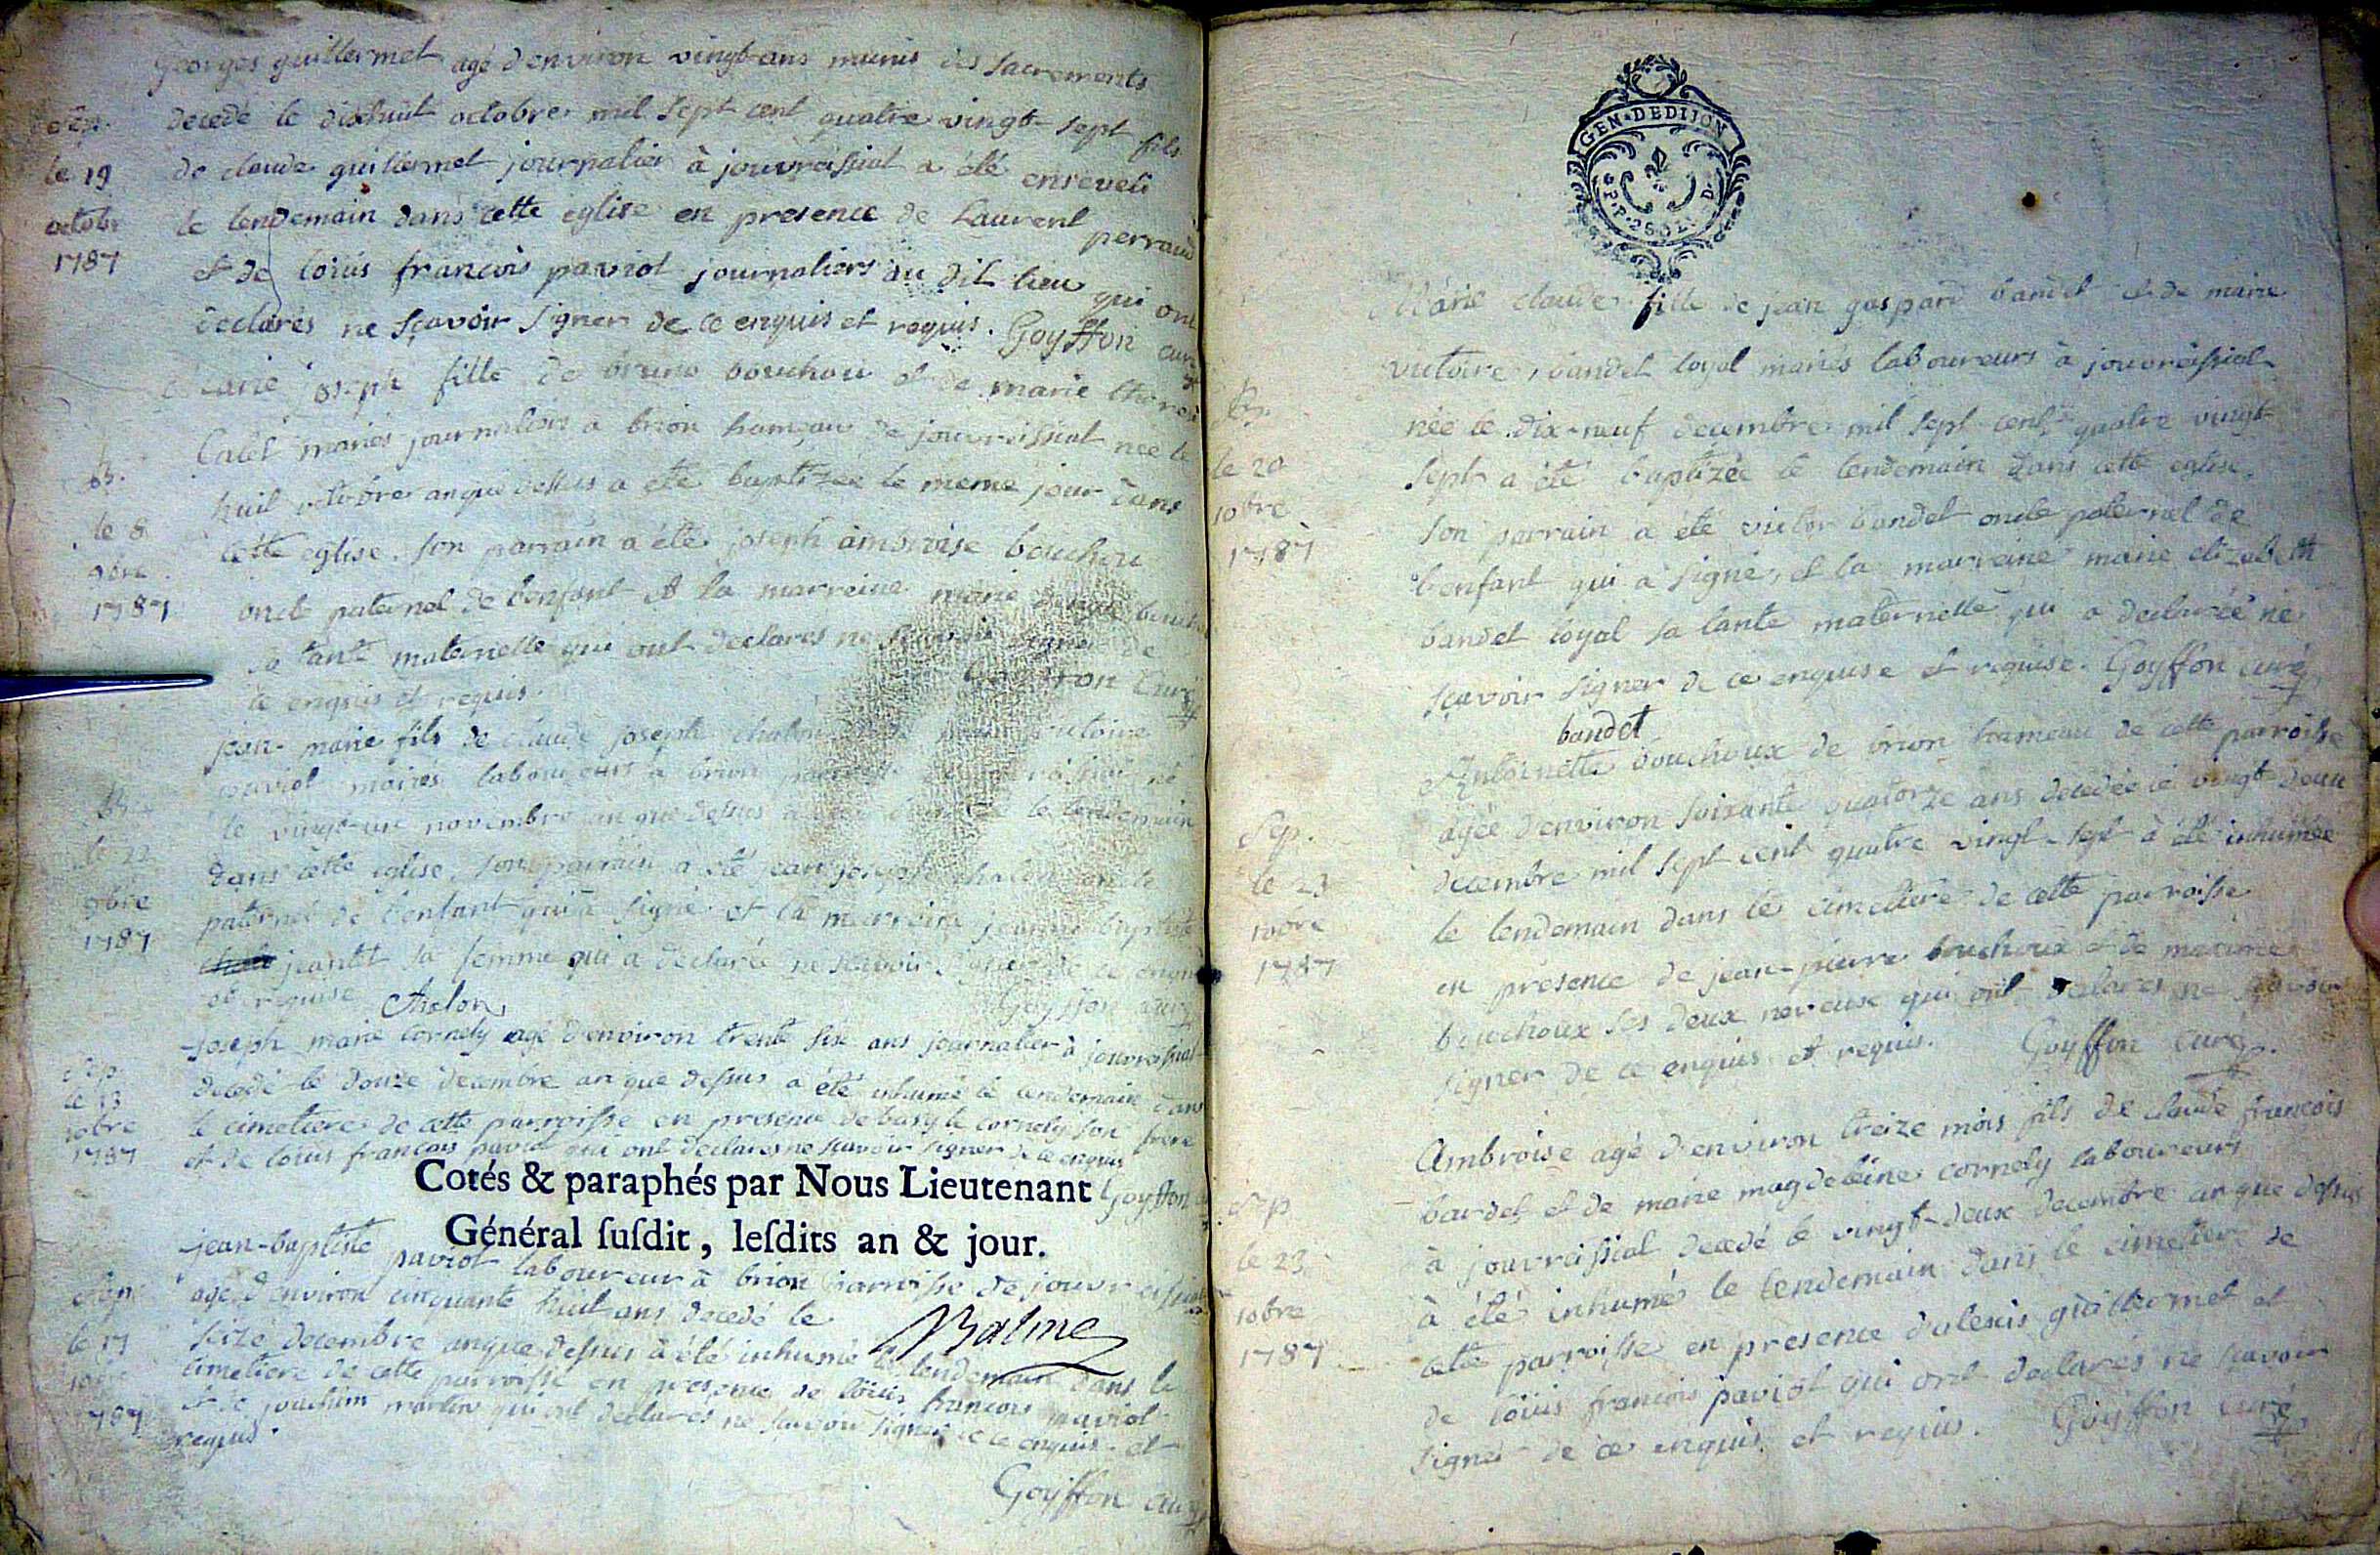 Georges guillermet agé d'environ vingt ans munis des sacrements
decedé le dixhuit octobre mil sept cent quatre vingt sept fils
de claude guillermet journalier à jouvreissiat a été enseveli
le lendemain dans cette eglise en presence de Laurent perraud
et de louis francois paviot journaliers au dit lieu qui ont
declarés ne sçavoir signer de ce enquis et requis. Goyffon curé
Sep.
le 19
octobr
1787
marie joseph fille de bruno bouchou et de marie therese
Calet mariés journaliers a brion hameau de jouvreissiat née le
huit octobre an que dessus a été baptizée le meme jour dans
cette eglise. son parrain a été joseph ambroise bouchou
oncle paternel de l'enfant et la marreine marie
sa tante maternelle qui ont declares ne sçavoir signer de
ce enquis et requis. Goyffon Curé
B.
le 8
9bre
1787
jean-marie fils de claude joseph chalon et de marie victoire
paviot mariés laboureurs a brion paroisse de jouvreissiat né
le vingt-un novembre an que dessus a été baptizé le lendemain
dans cette eglise. son parrain a été jean joseph chalon oncle
paternel de l'enfant qui a signé et la marreine jeanne baptiste
jeantet sa femme qui a declarée ne sçavoir signer de ce enquise
et requise Chalon Goyffon curé
B.
le 22
9bre
1787
joseph marie Cornely agé d'environ trente six ans journalier à jouvreissiat
decedé le douze decembre an que dessus a été inhumé le lendemain dans
le cimetiere de cette parroisse en presence de basyle cornely son frere
et de louis francois paviot qui ont declares ne sçavoir signer de ce enquis
Goyffon
Sep
le 13
10bre
1787
Cotés & paraphés par Nous Lieutenant
Général susdit, lesdits an & jour.
Balme
jean-baptiste paviot laboureur à brion parroisse de jouvreissiat
agé d'environ cinquante huit ans decedé le
seize decembre an que dessus à été inhumé le lendemain dans le
cimetiere de cette parroisse en presence de louis francois paviot
et de jouachim martin qui ont declarés ne sçavoir signer de ce enquis et
requis.
Goyffon curé
Sep
le 17
10bre
1787
GEN. DEDIJON
P.P. 2 SOL. D
Marie claude fille de jean gaspard bandet et de marie
victoire bandet loyal mariés laboureurs à jouvreissiat
née le dix-neuf decembre mil sept cent quatre vingt
sept a été baptizée le lendemain dans cette eglise.
son parrain a été victor bandet oncle paternel de
l'enfant qui a signé, et la marreine marie elizabeth
bandet loyal sa tante maternelle qui a declarée ne
sçavoir signer de ce enquise et requise. Goyffon curé
bandet
B.
le 20
10bre
1787
Antoinette bouchoux de brion hameau de cette parroisse
agée d'environ soixante quatorze ans decedée le vingt-deux
decembre mil sept cent quatre vingt-sept à été inhumée
le lendemain dans le cimetiere de cette parroisse
en presence de jean-pierre bouchoux et de maxime
bouchoux ses deux neveux qui ont declares ne sçavoir
signer de ce enquis et requis. Goyffon curé
Sep.
le 23
10bre
1787
Ambroise agé d'environ treize mois fils de claude francois
bardet et de marie magdeleine cornely laboureurs
à jouvreissiat decedé le vingt-deux decembre an que dessus
à été inhumé le lendemain dans le cimetiere de
cette parroisse en presence d'alexis guillermet et
de louis francois paviot qui ont declarés ne sçavoir
signer de ce enquis et requis. Goyffon curé
Sep
le 23
10bre
1787